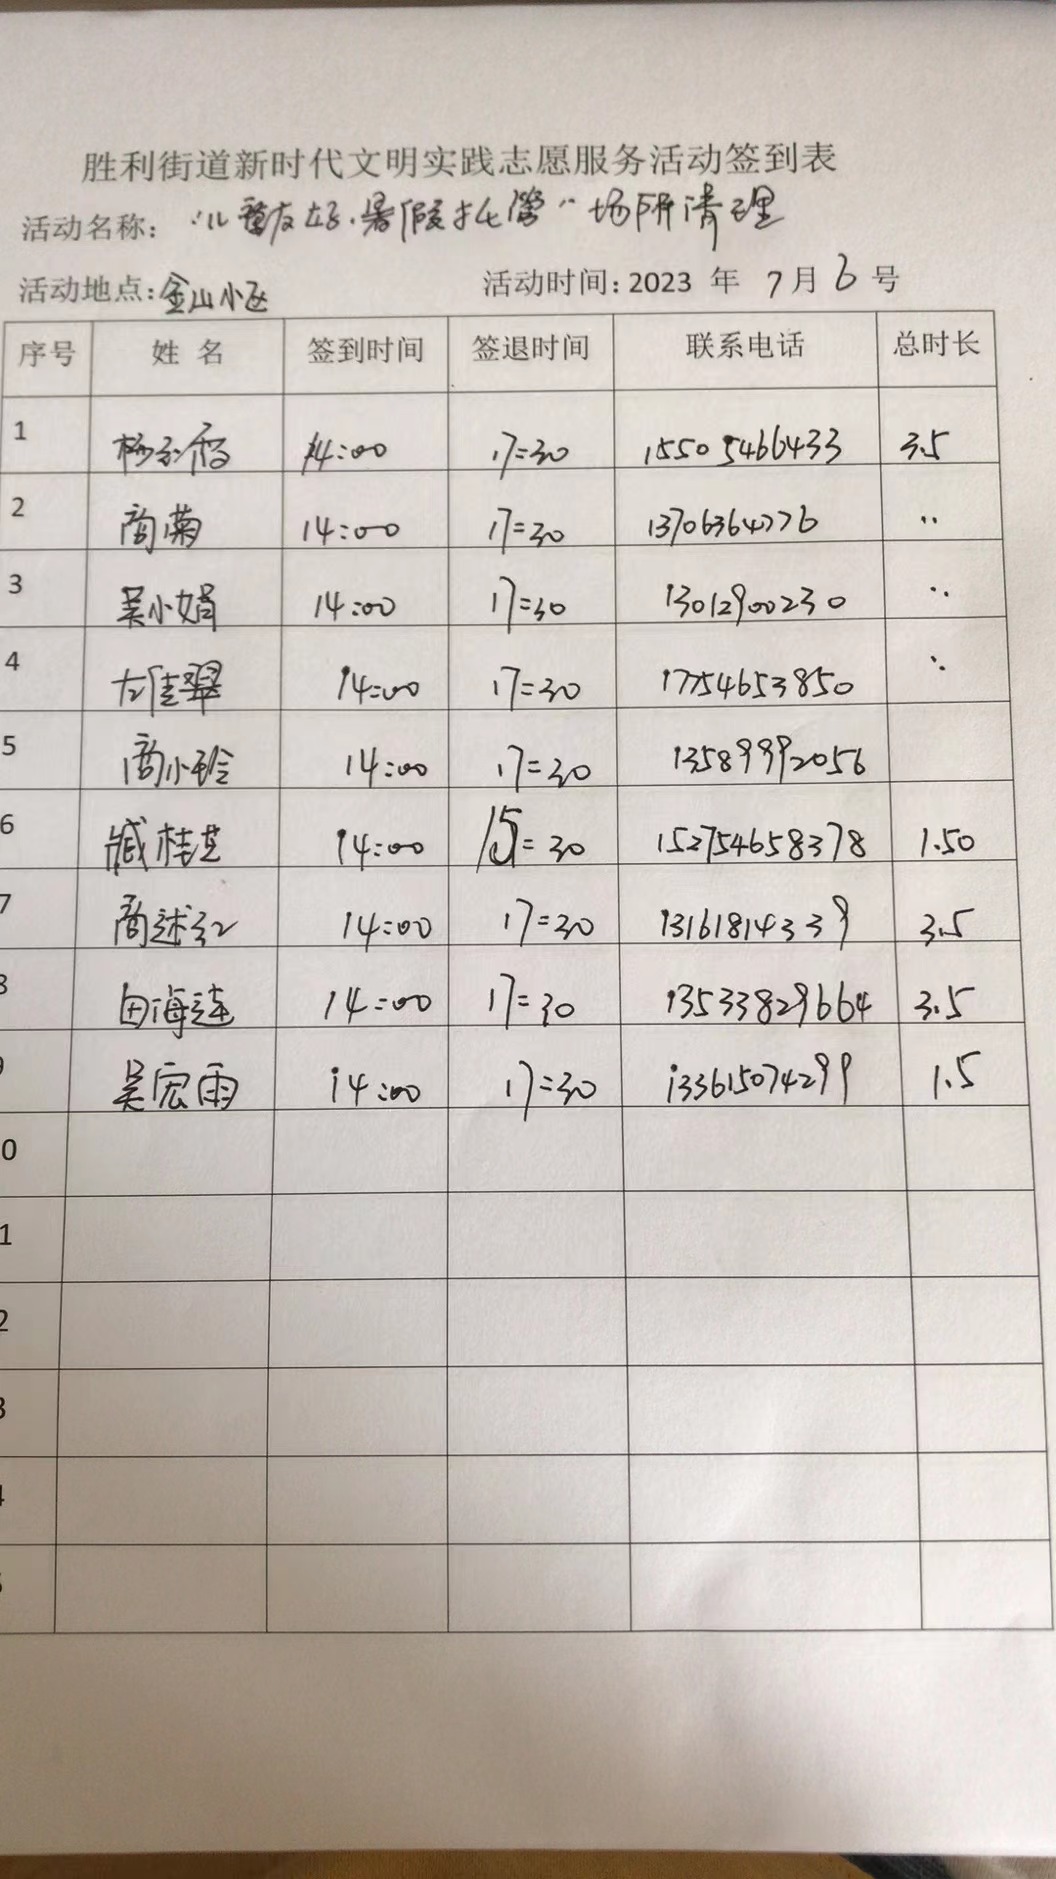 胜利街道新时代文明实践志愿服务活动签到表
活动名称: "儿童友好·暑假托管"场所清理
活动地点:金山小区 活动时间:2023 年 7月6号
序号 姓 名 签到时间 签退时间 联系电话 总时长
1 14:00 17=30 15505466433 3.5
2 商菊 14:00 17=30 13706364776 ..
3 吴小娟 14:00 17=30 13012900230 ..
4 左佳翠 14:00 17=30 17754653850 ..
5 商小玲 14:00 17=30 13589992056
6 臧桂芝 14:00 15=30 152754658378 1.50
7 商述红 14:00 17=30 13161814339 3.5
8 田海莲 14:00 17=30 13533829664 3.5
9 吴宏雨 14:00 17=30 133615074299 1.5
0
1
2
3
4
5